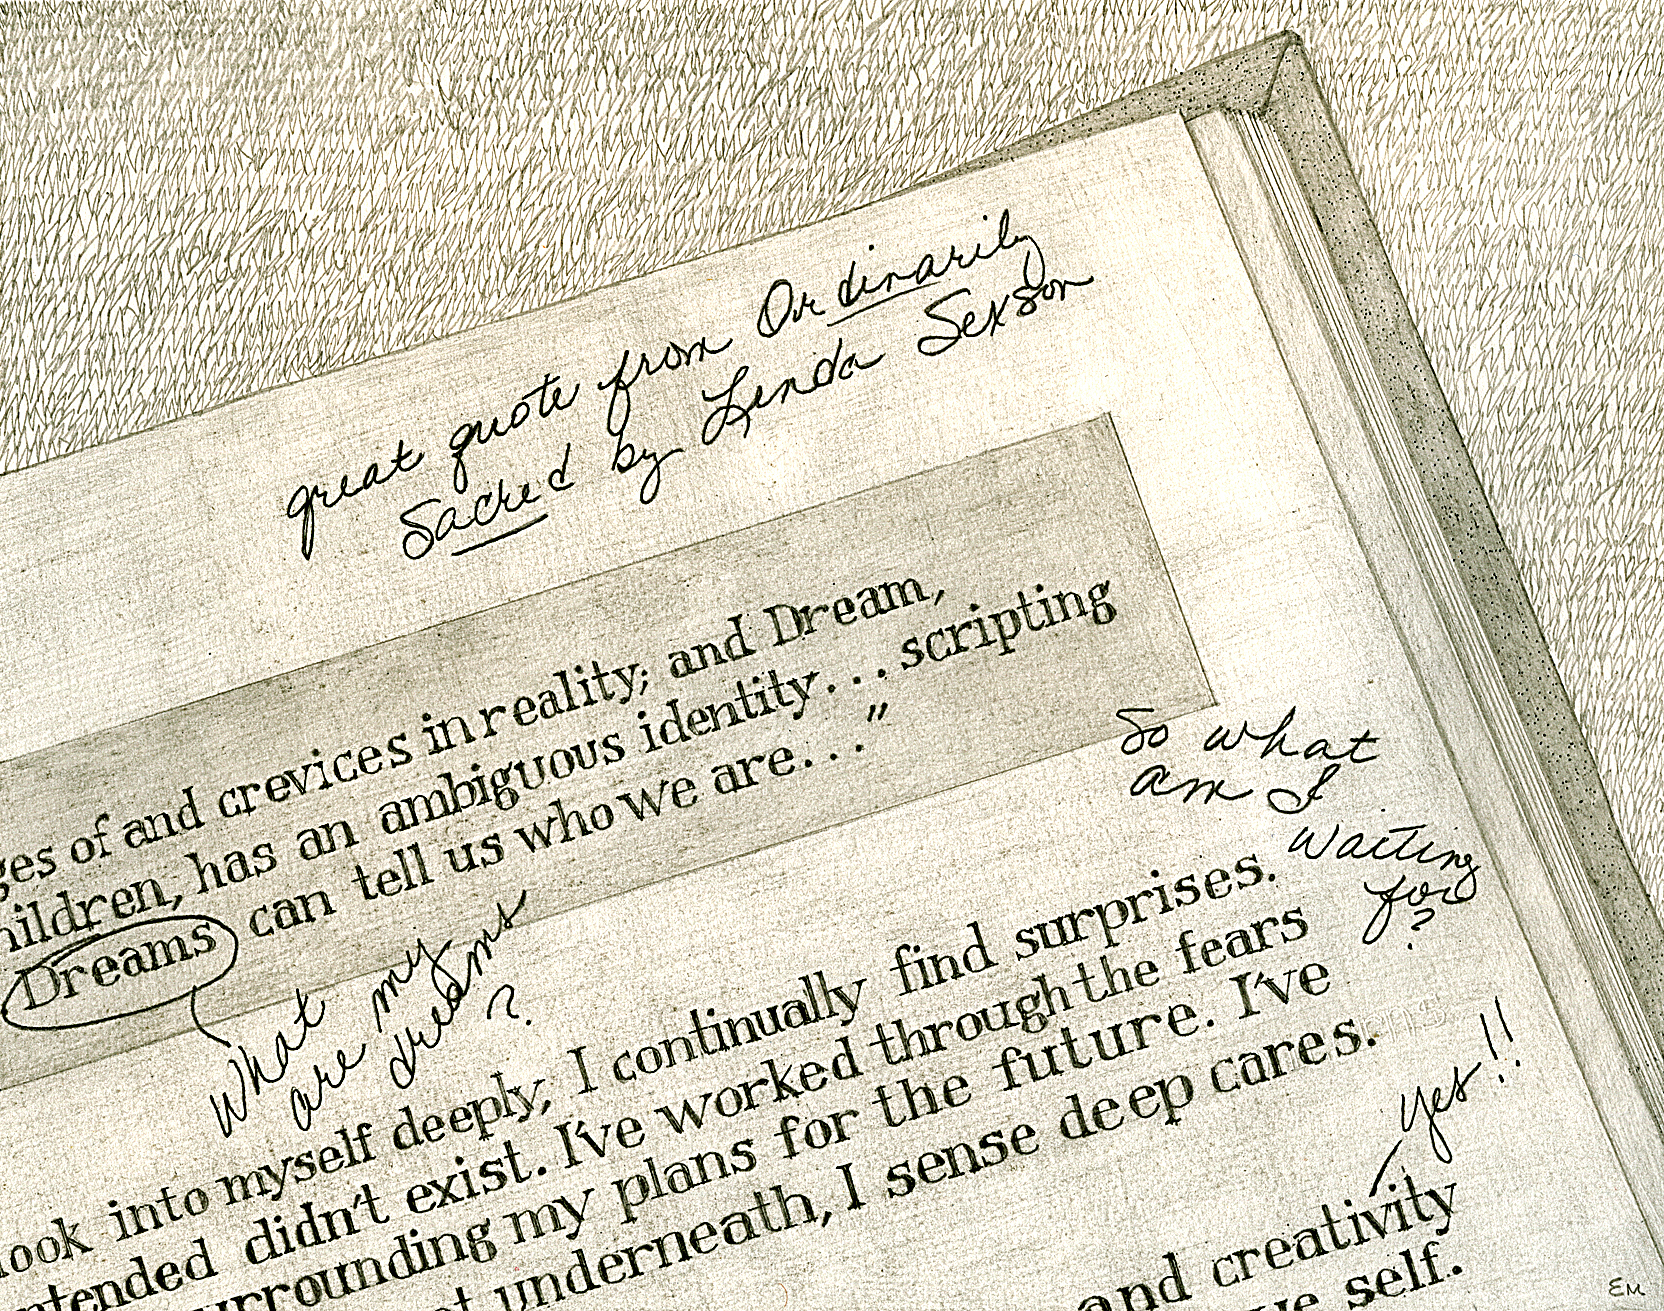 great quote from Ordinarily
Sacred by Lynda Sexson
ges of and crevices in reality; and Dream,
hildren, has an ambiguous identity...scripting
Dreams can tell us who we are..."
What my
are dreams
?
So what
am I
waiting
for
?
look into myself deeply, I continually find surprises.
ntended didn't exist. I've worked through the fears
urrounding my plans for the future. I've
ot underneath, I sense deep cares.
yes!!
and creativity
ue self.
EM